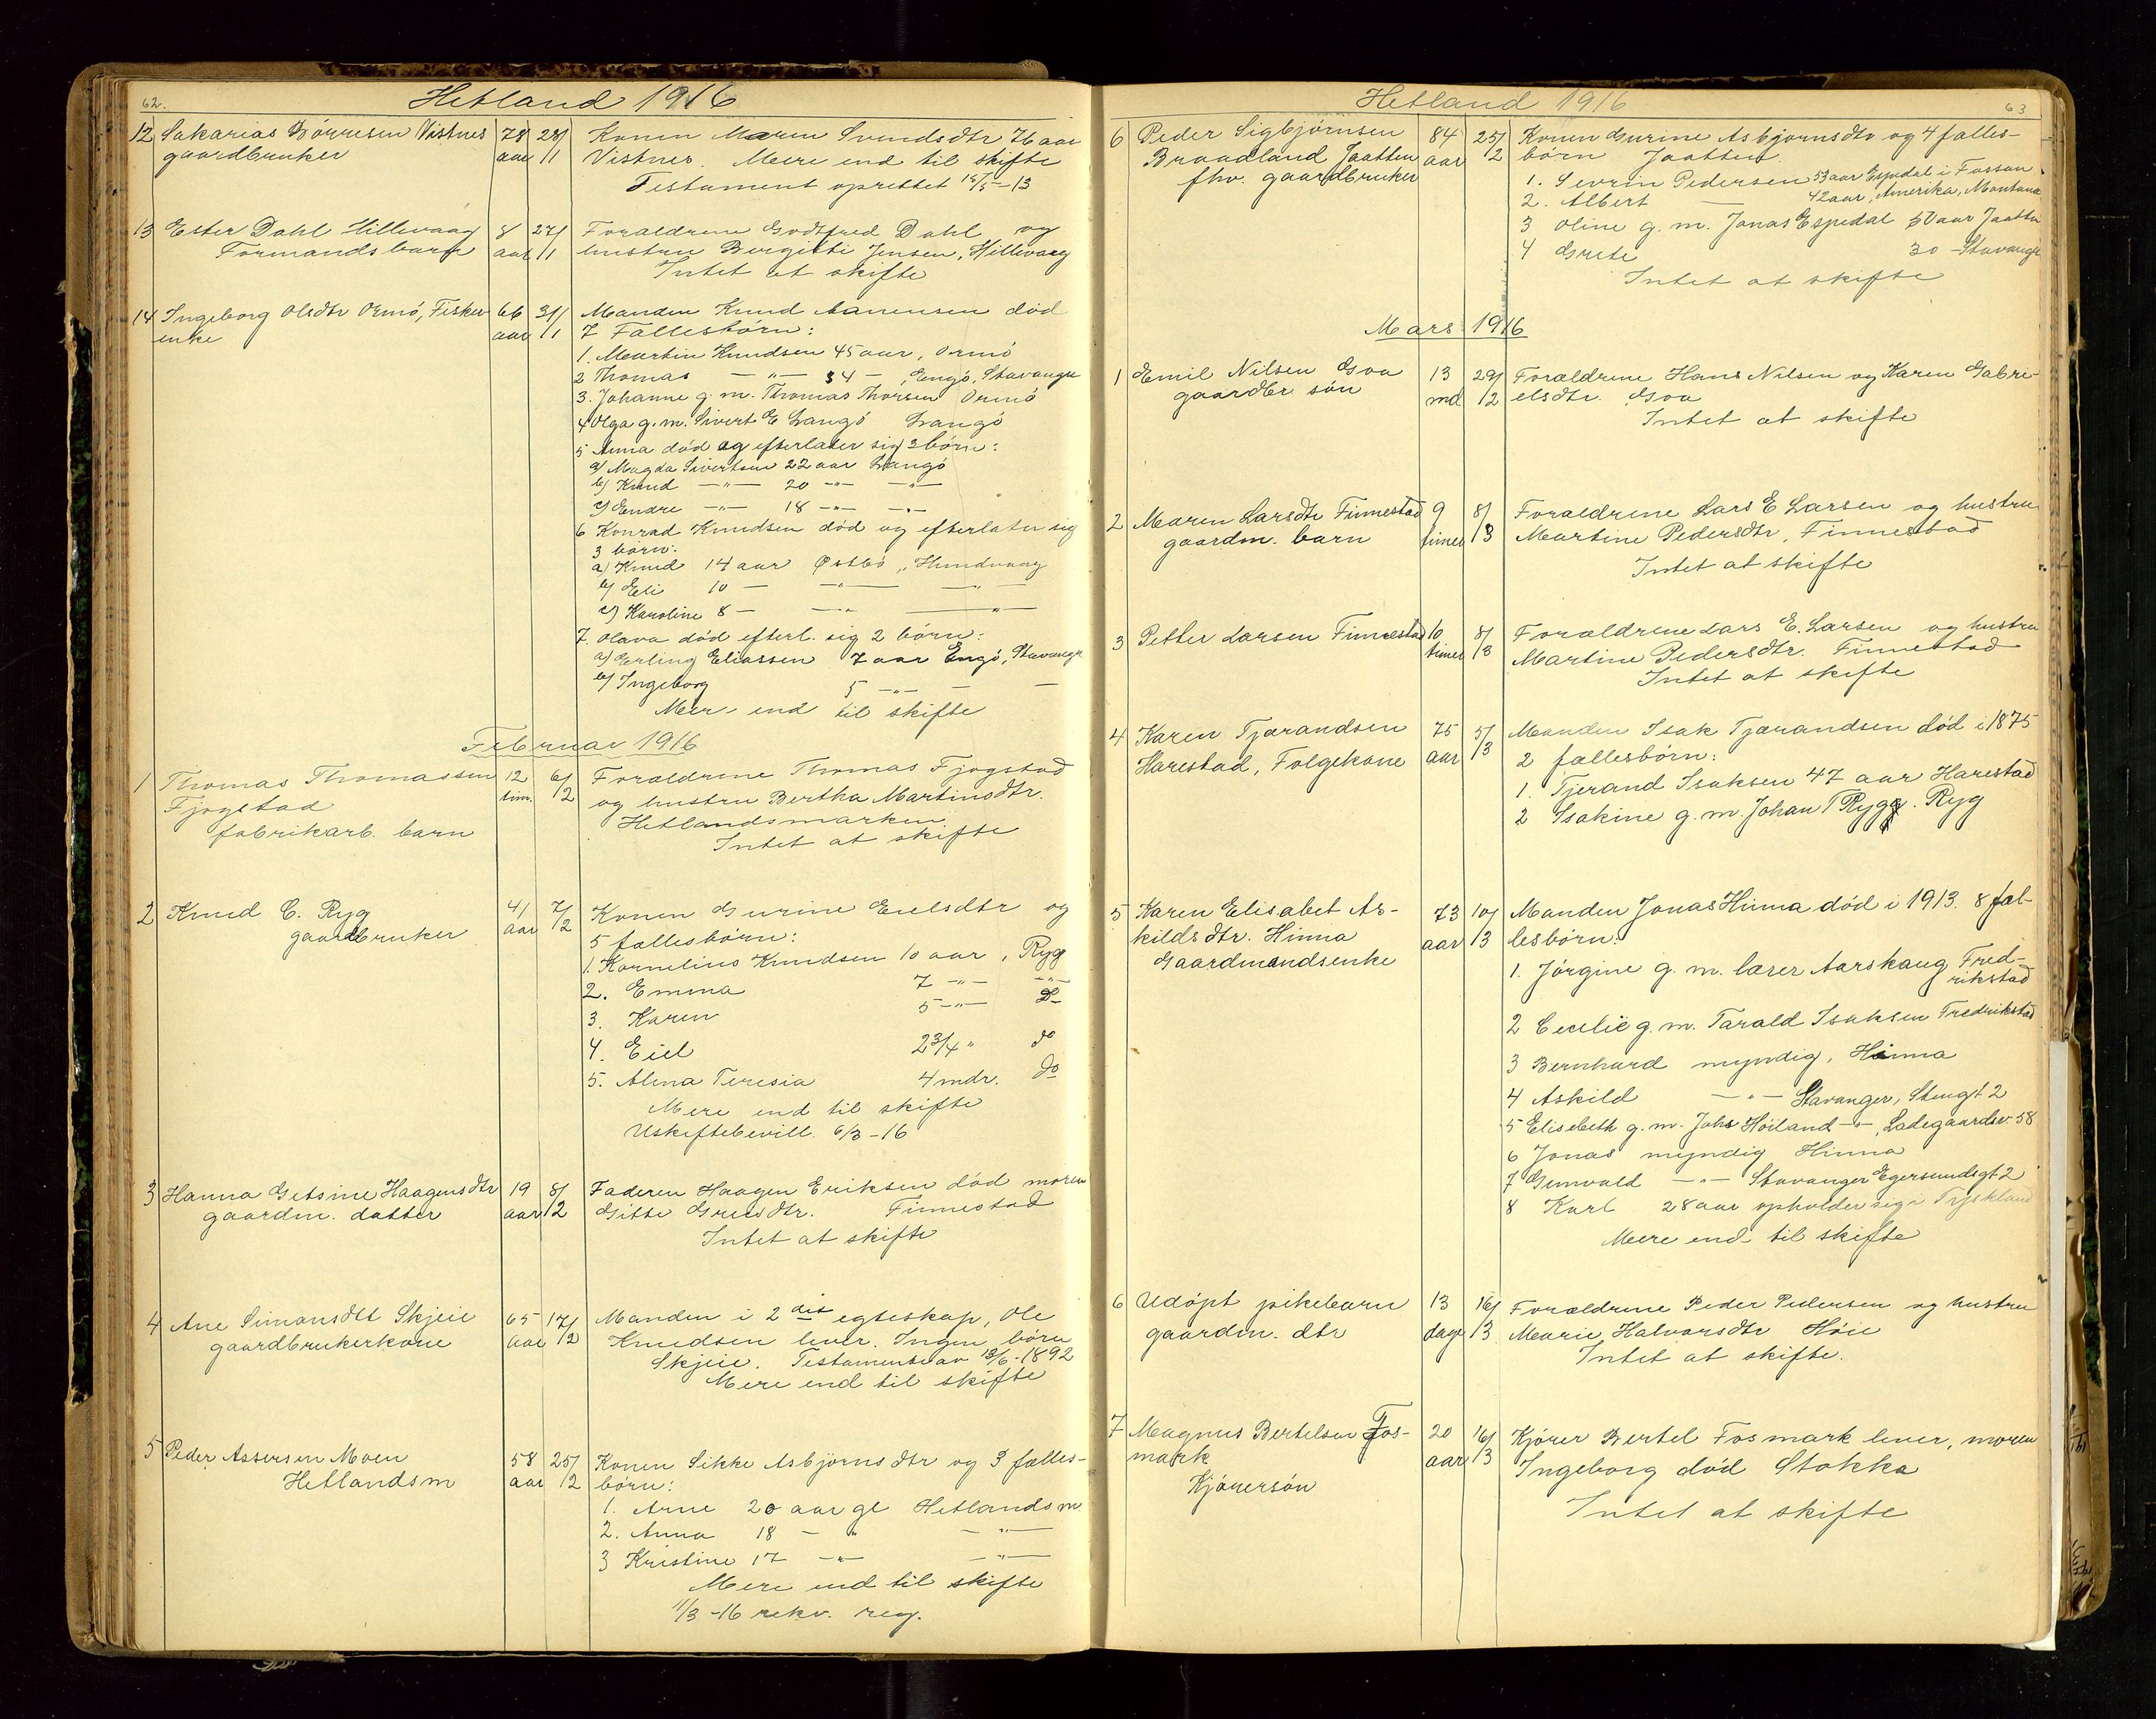 62.
Hetland 1916
12 Sakarias Børresen Vistnes 78 28/ Konen Maren Svendsdtr 76 aar
gaardbruker aar /1 Vistnes. Mere end til skifte
Testament oprettet 15/5-13
13 Ester Dahl Hillevaag 8 27/ Forældrene Godtfred Dahl og
Formandsbarn aar /1 hustru Bergitte Jensen, Hillevaag
Intet at skifte
14 Ingeborg Olsdtr Ormø, Fisker 66 31/ Manden Knud Aanensen død
enke aar /1 7 Fællesbørn:
1. Martin Knudsen 45 aar, Ormø
2 Thomas —"— 34 — , Engø, Stavanger
3. Johanne g. m. Thomas Thorsen Ormø
4 Olga g. m. Sivert E Langø Langø
5 Anna død og efterlater sig 3 børn:
a) Magda Sivertsen 22 aar Langø
b) Knud —"— 20 —"— —"—
c) Endre —"— 18 —"— —"—
6 Konrad Knudsen død og efterlater sig
3 børn:
a) Knud 14 aar Østbø, Hundvaag
b) Eli 10 — —"— —"—
c) Karoline 8 — —"— —"—
7. Olava død efterl. sig 2 børn:
a) Erling Eliassen 7 aar Engø, Stavanger
b) Ingeborg 5 —"— — —
Mere end til skifte
Februar 1916
1 Thomas Thomassen 12 6/ Forældrene Thomas Fjogstad
Fjogstad tim. /2 og hustru Bertha Martinsdtr.
fabrikarb. barn Hetlandsmarken
Intet at skifte
2 Knud C. Ryg 41 7/ Konen Gurine Eielsdtr og
gaardbruker aar /2 5 fællesbørn:
1. Kornelius Knudsen 10 aar, Ryg
2. Emma 7 —"— —"—
3. Karen 5 —"— do
4. Eiel 2 3/4 " do
5. Alma Teresia 4 mdr. do
Mere end til skifte
Uskiftebevill. 6/3-16
3 Hanna Getsine Haagensdtr 19 8/ Faderen Haagen Eriksen død moren
gaardm. datter aar /2 Gitte Greisdtr. Finnestad
Intet at skifte
4 Ane Simonsdtt Skjeie 65 17/ Manden i 2det egteskap, Ole
gaardbrukerkone aar /2 Knudsen lever. Ingen børn
Skjeie. Testamente av 18/6-1892
Mere end til skifte
5 Peder Assersen Moen 58 25/ Konen Sikke Asbjørnsdtr og 3 fælles-
Hetlandsm aar /2 børn:
1. Arne 20 aar gl Hetlandsm.
2. Anna 18 — " — "—
3 Kristine 17 —"— —"—
Mere end til skifte
11/3-16 rekv. reg.
63
Hetland 1916
6 Peder Sigbjørnsen 84 25/ Konen Gurine Asbjørnsdtr og 4 fælles-
Braadland Jaatten aar /2 børn Jaatten.
fhv. gaardbruker 1. Sevrin Pedersen 53 aar Espedal i Fossan
2. Albert — 42 aar, Amerika, Montana
3 Oline g. m. Jonas Espedal 50 aar Jaatten
4 Grete 30 — Stavanger
Intet at skifte
Mars 1916
1 Emil Nilsen Goa 13 29/ Forældrene Hans Nilsen og Karen Gabri-
gaardbr søn md /2 elsdtr. Goa
Intet at skifte
2 Maren Larsdtr Finnestad 9 8/ Forældrene Lars E Larsen og hustru
gaardm. barn timer /3 Martine Pedersdtr, Finnestad
Intet at skifte
3 Petter Larsen Finnestad 10 8/ Forældrene Lars E. Larsen og hustru
timer /3 Martine Pedersdtr. Finnestad
Intet at skifte
4 Karen Tjærandsen 75 5/ Manden Isak Tjærandsen død i 1875
Harestad, Følgekone aar /3 2 fællesbørn:
1. Tjerand Isaksen 47 aar Harestad
2 Isakine g. m. Johan T Ryg. Ryg
5 Karen Elisabet As- 73 10/ Manden Jonas Hinna død i 1913. 8 fæl-
kildsdtr. Hinna aar /3 lesbørn:
Gaardmandsenke 1. Jørgine g. m. lærer Aarskaug Fred-
rikstad
2 Cecilie g. m. Tarald Isaksen Fredrikstad
3 Bernhard myndig, Hinna
4 Askild —"— Stavanger, Stengt 2
5 Elisebeth g. m. Johs Høiland —"—, Ladegaardsv. 58
6 Jonas myndig Hinna
7 Gunvald —"— Stavanger Egersundsgt 2
8 Karl 28 aar opholder sig i Tyskland
Mere end til skifte
6 Udøpt pikebarn 13 16/ Forældrene Peder Pedersen og hustru
gaardm. dtr dage /3 Marie Halvorsdtr Høie
Intet at skifte.
7 Magnus Bertelsen Fos- 20 16/ Kjører Bertel Fosmark lever, moren
mark aar /3 Ingeborg død Stokka
Kjørersøn
Intet at skifte